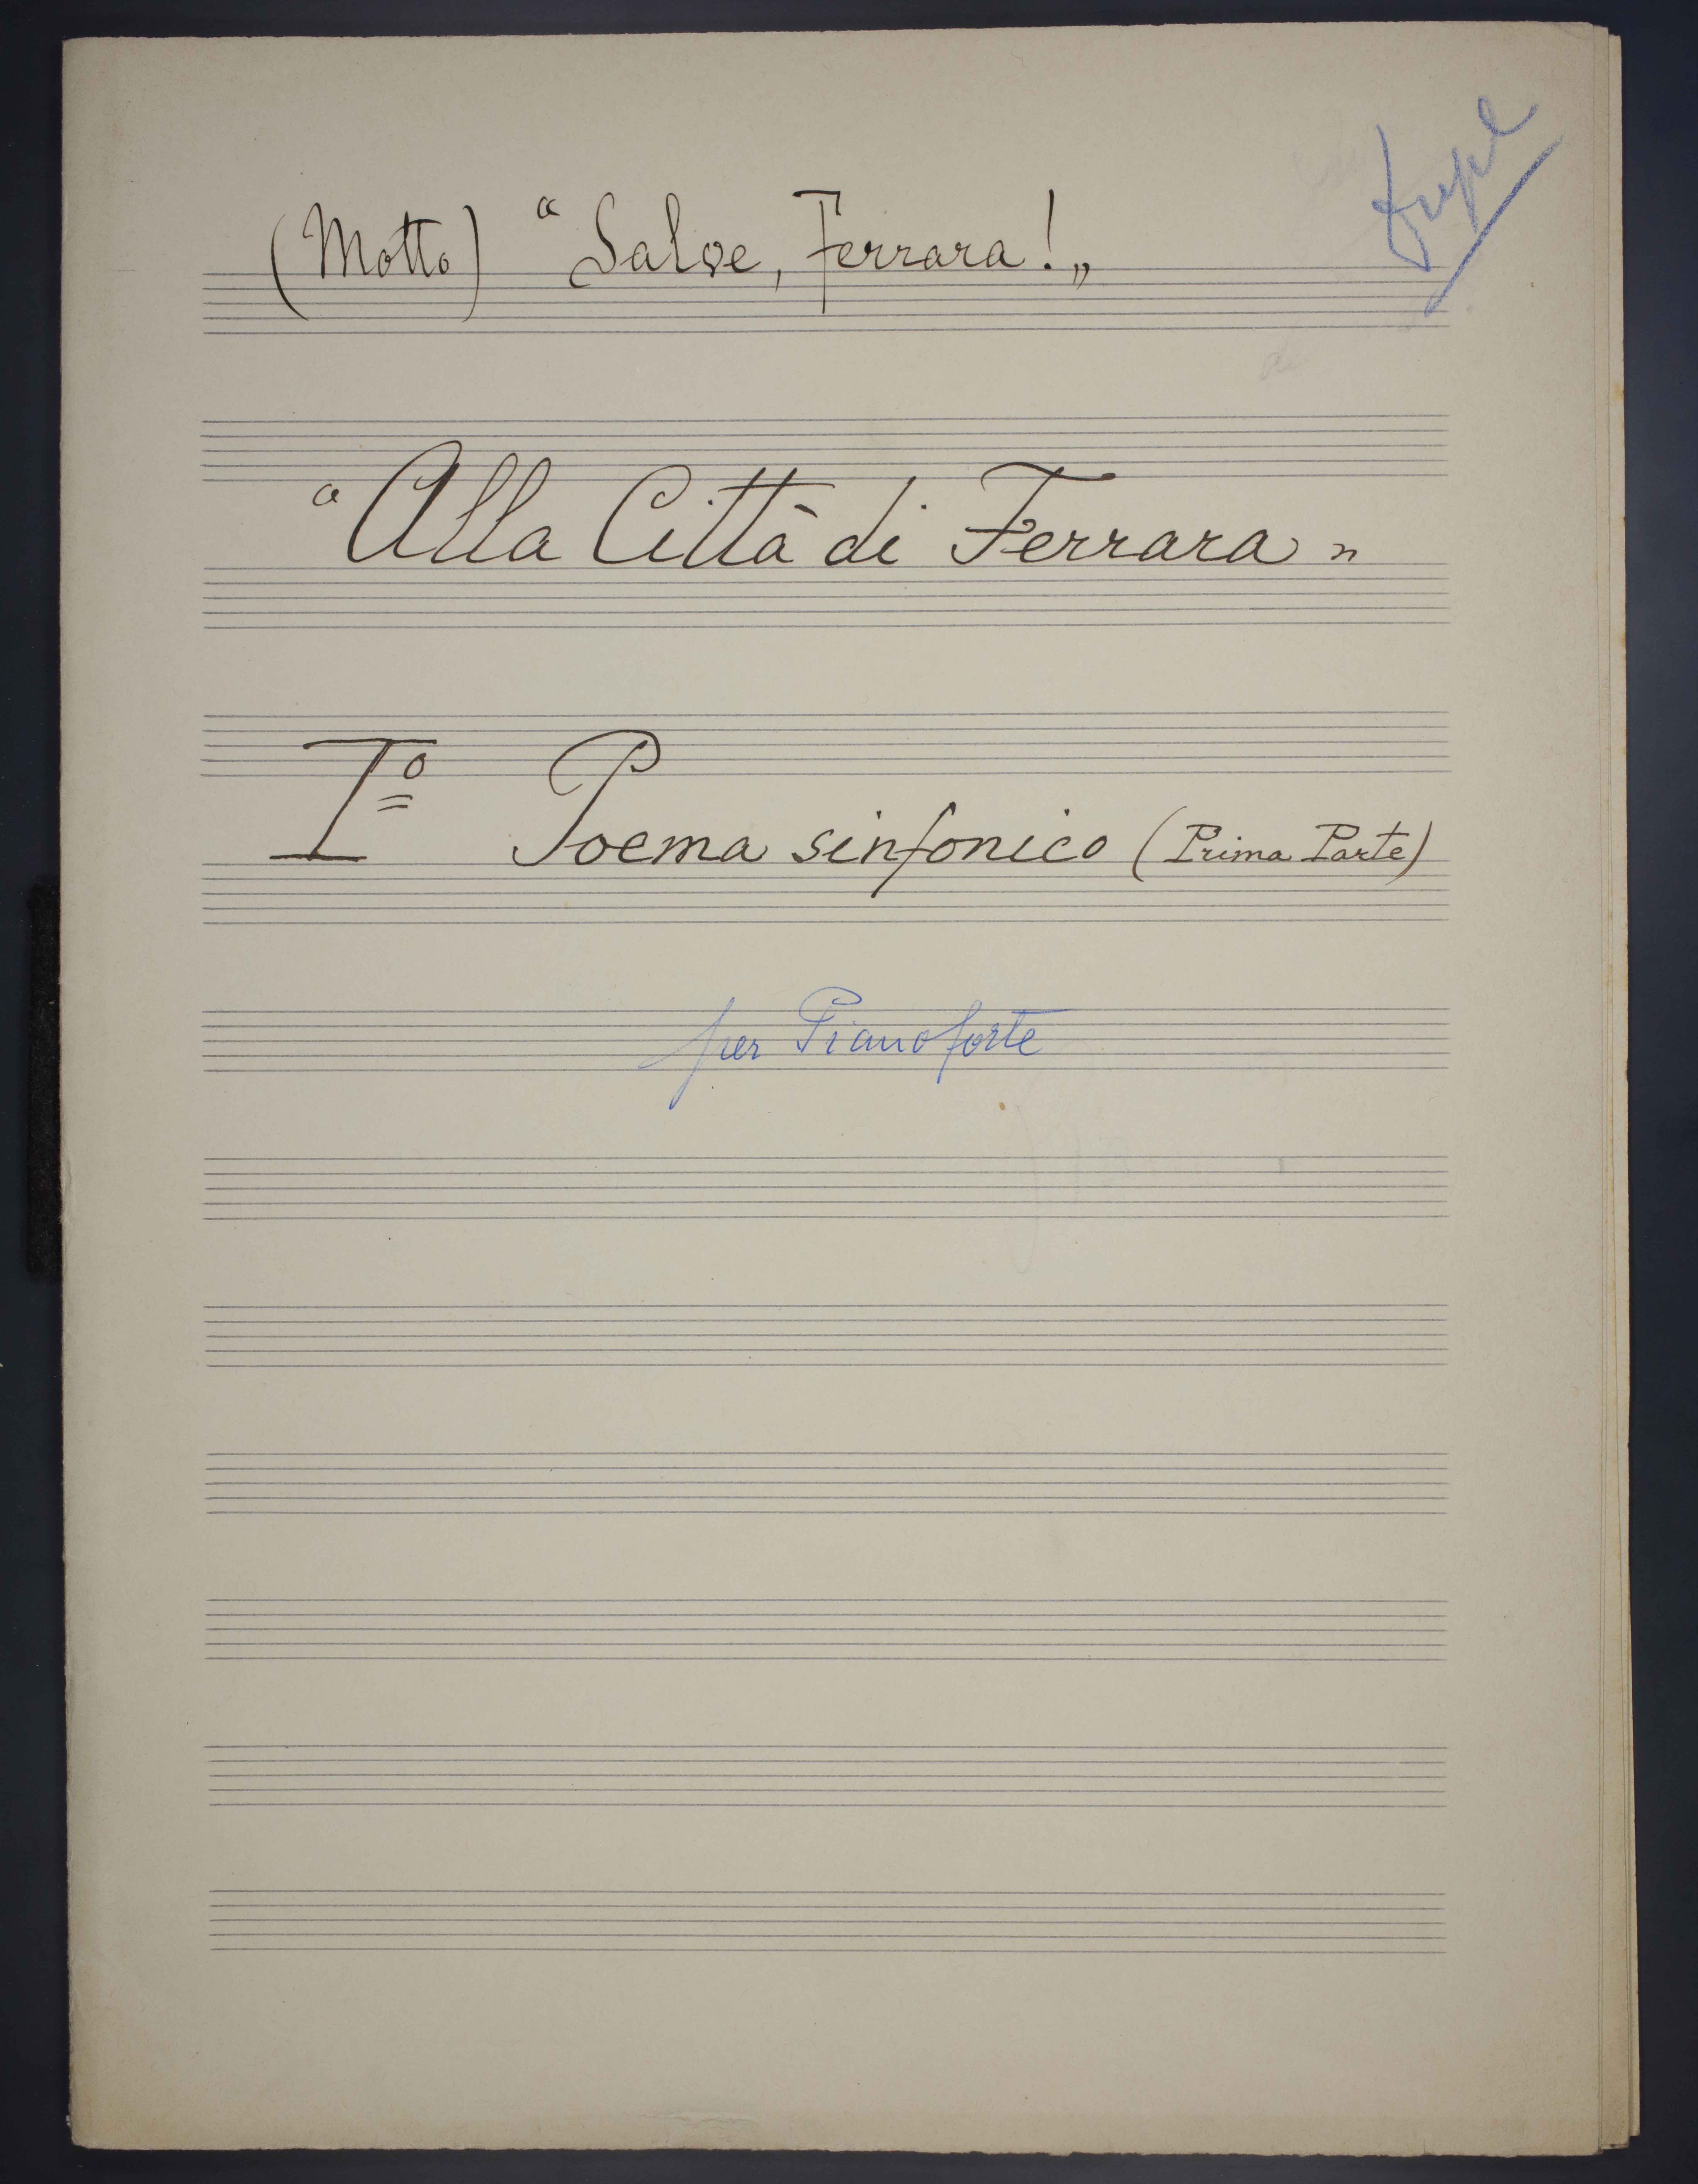 (Motto) “Salve, Ferrara!„
“Alla Città di Ferrara„
Iº Poema sinfonico (Prima Parte)
per Pianoforte